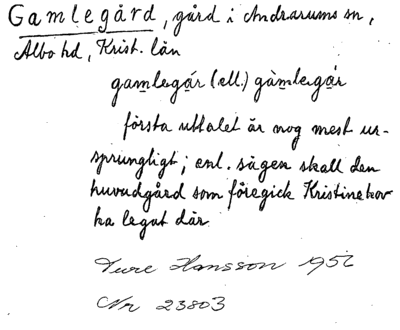 Gamlegård, gård i Andrarums sn,
Albo hd, Krist. län
gamlegår (ell.) gàmlegår
första uttalet är nog mest ur-
sprungligt; enl. sägen skall den
huvudgård som föregick Kristinehov
ha legat där
Ture Hansson 1956
Nr 23803